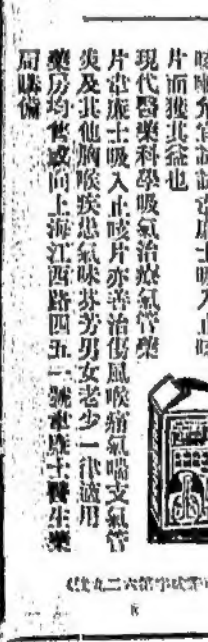 片而獲其益也
現代醫藥科學吸氣治療氣管藥
片韋廉士吸入止咳片亦善治傷風喉痛氣喘支氣管
炎及其他胸喉疾患氣味芬芳男女老少一律適用
藥房均售或向上海江西路四五一號韋廉士醫生藥
局購備